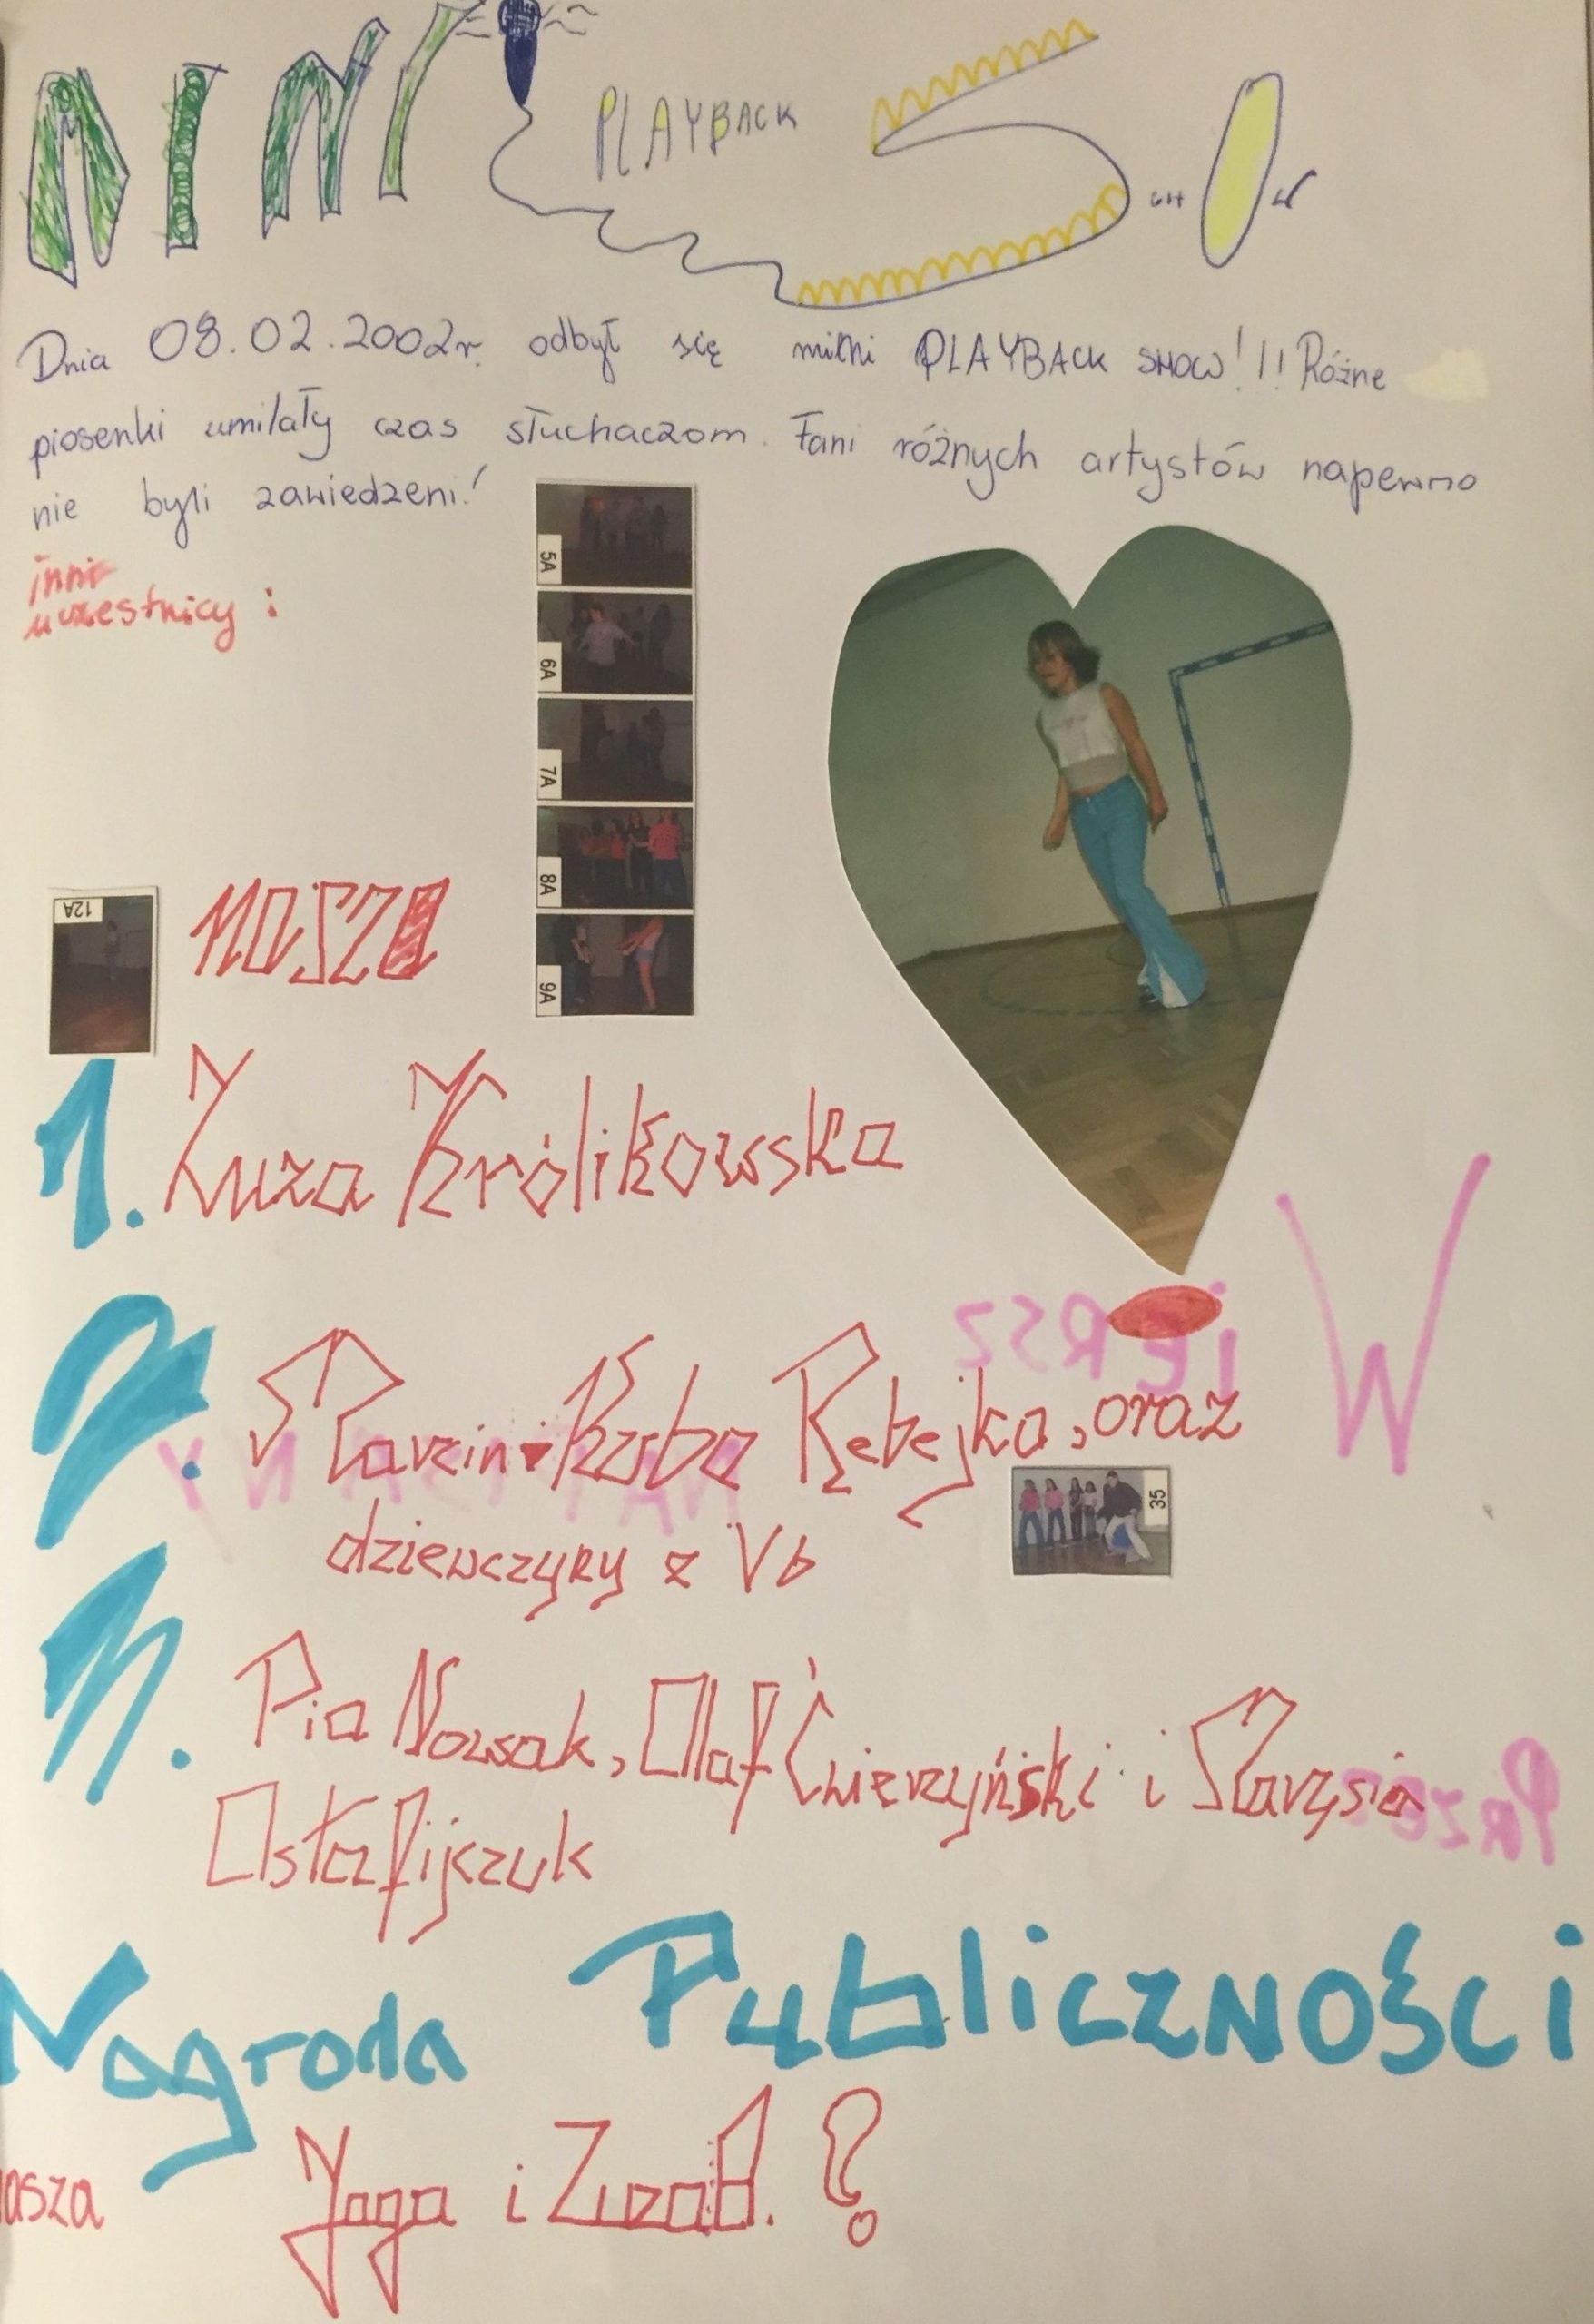 MINI PLAYBACK SHOW
Dnia 08.02.2002r. odbył się miNi PLAYBACK SHOW!!! Różne
piosenki umilały czas słuchaczom. Fani różnych artystów napewno
nie byli zawiedzeni!
inni
uczestnicy :
5A
6A
7A
8A
9A
12A
nasza
1. Zuza Królikowska
2. Marcin-Kuba Rębejko, oraz
dziewczyny z Vb
35
3. Pia Nowak, Olaf Ćwierzyński i Marysia
Ostafijczuk
Nagroda Publiczności
asza Jaga i Zuza B. ?
WiERSZ
NAPISANY
PRZEZ